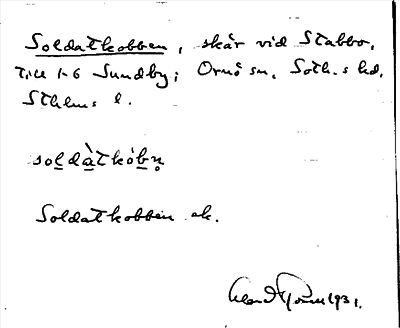 Soldatkobben, skär vid Stabbo,
till 1-6 Sundby; Ornö sn, Soth.s hd,
Sthlms l.
soldàtkob̥n̥
Soldatkobben ek.
1931.